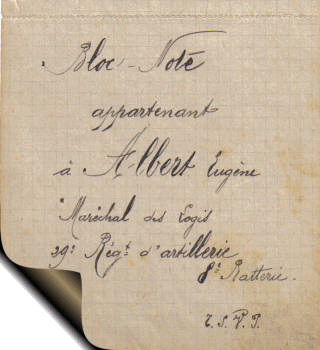 Bloc-Note
appartenant
à Albert Eugène
Maréchal des Logis
39e Régt d'artillerie
8e Batterie.
T. S. V. P.